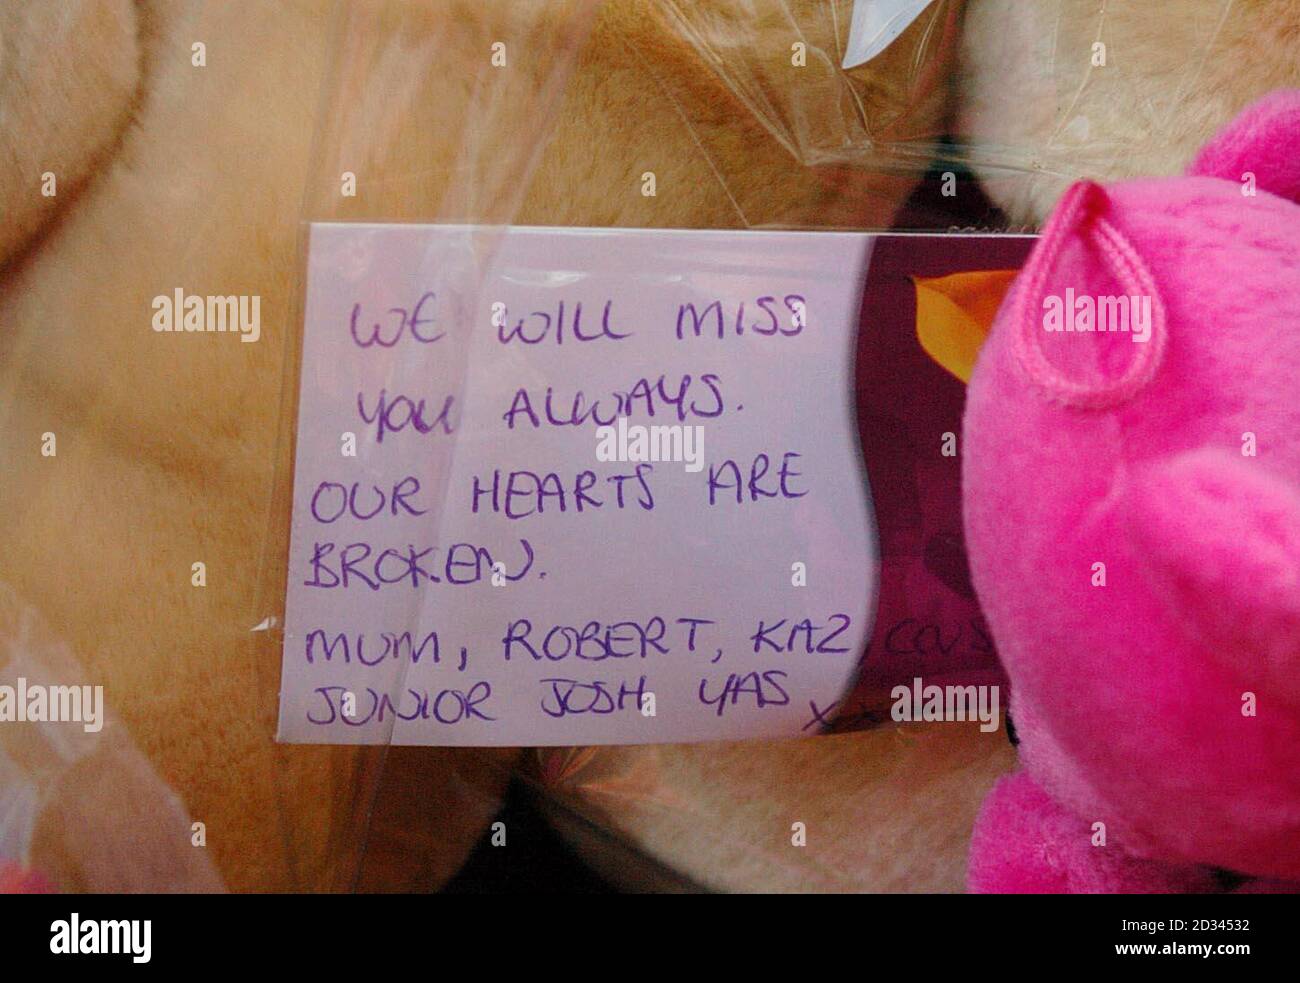 WE WILL MISS
YOU ALWAYS.
OUR HEARTS ARE
BROKEN.
MUM, ROBERT, KAZ,
JUNIOR JOSH YAS xx
alamy
alamy
alamy
alamy
alamy
alamy
Image ID: 2D34532
www.alamy.com